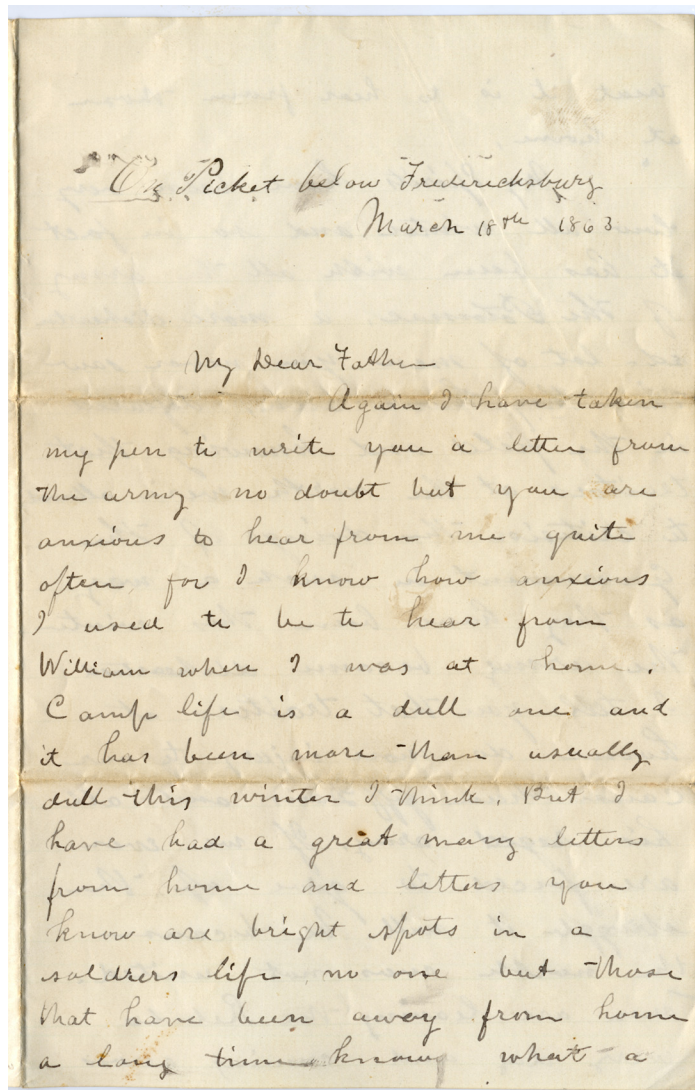 On Picket below Fredericksburg
March 18th 1863
My Dear Father
Again I have taken
my pen to write you a letter from
the army no doubt but you are
anxious to hear from me quite
often, for I know how anxious
I used to be to hear from
William where I was at home.
Camp life is a dull one and
it has been more than usually
dull this winter I think. But I
have had a great many letters
from home and letters you
know are bright spots in a
soldiers life no one but those
that have been away from home
a long time know what a